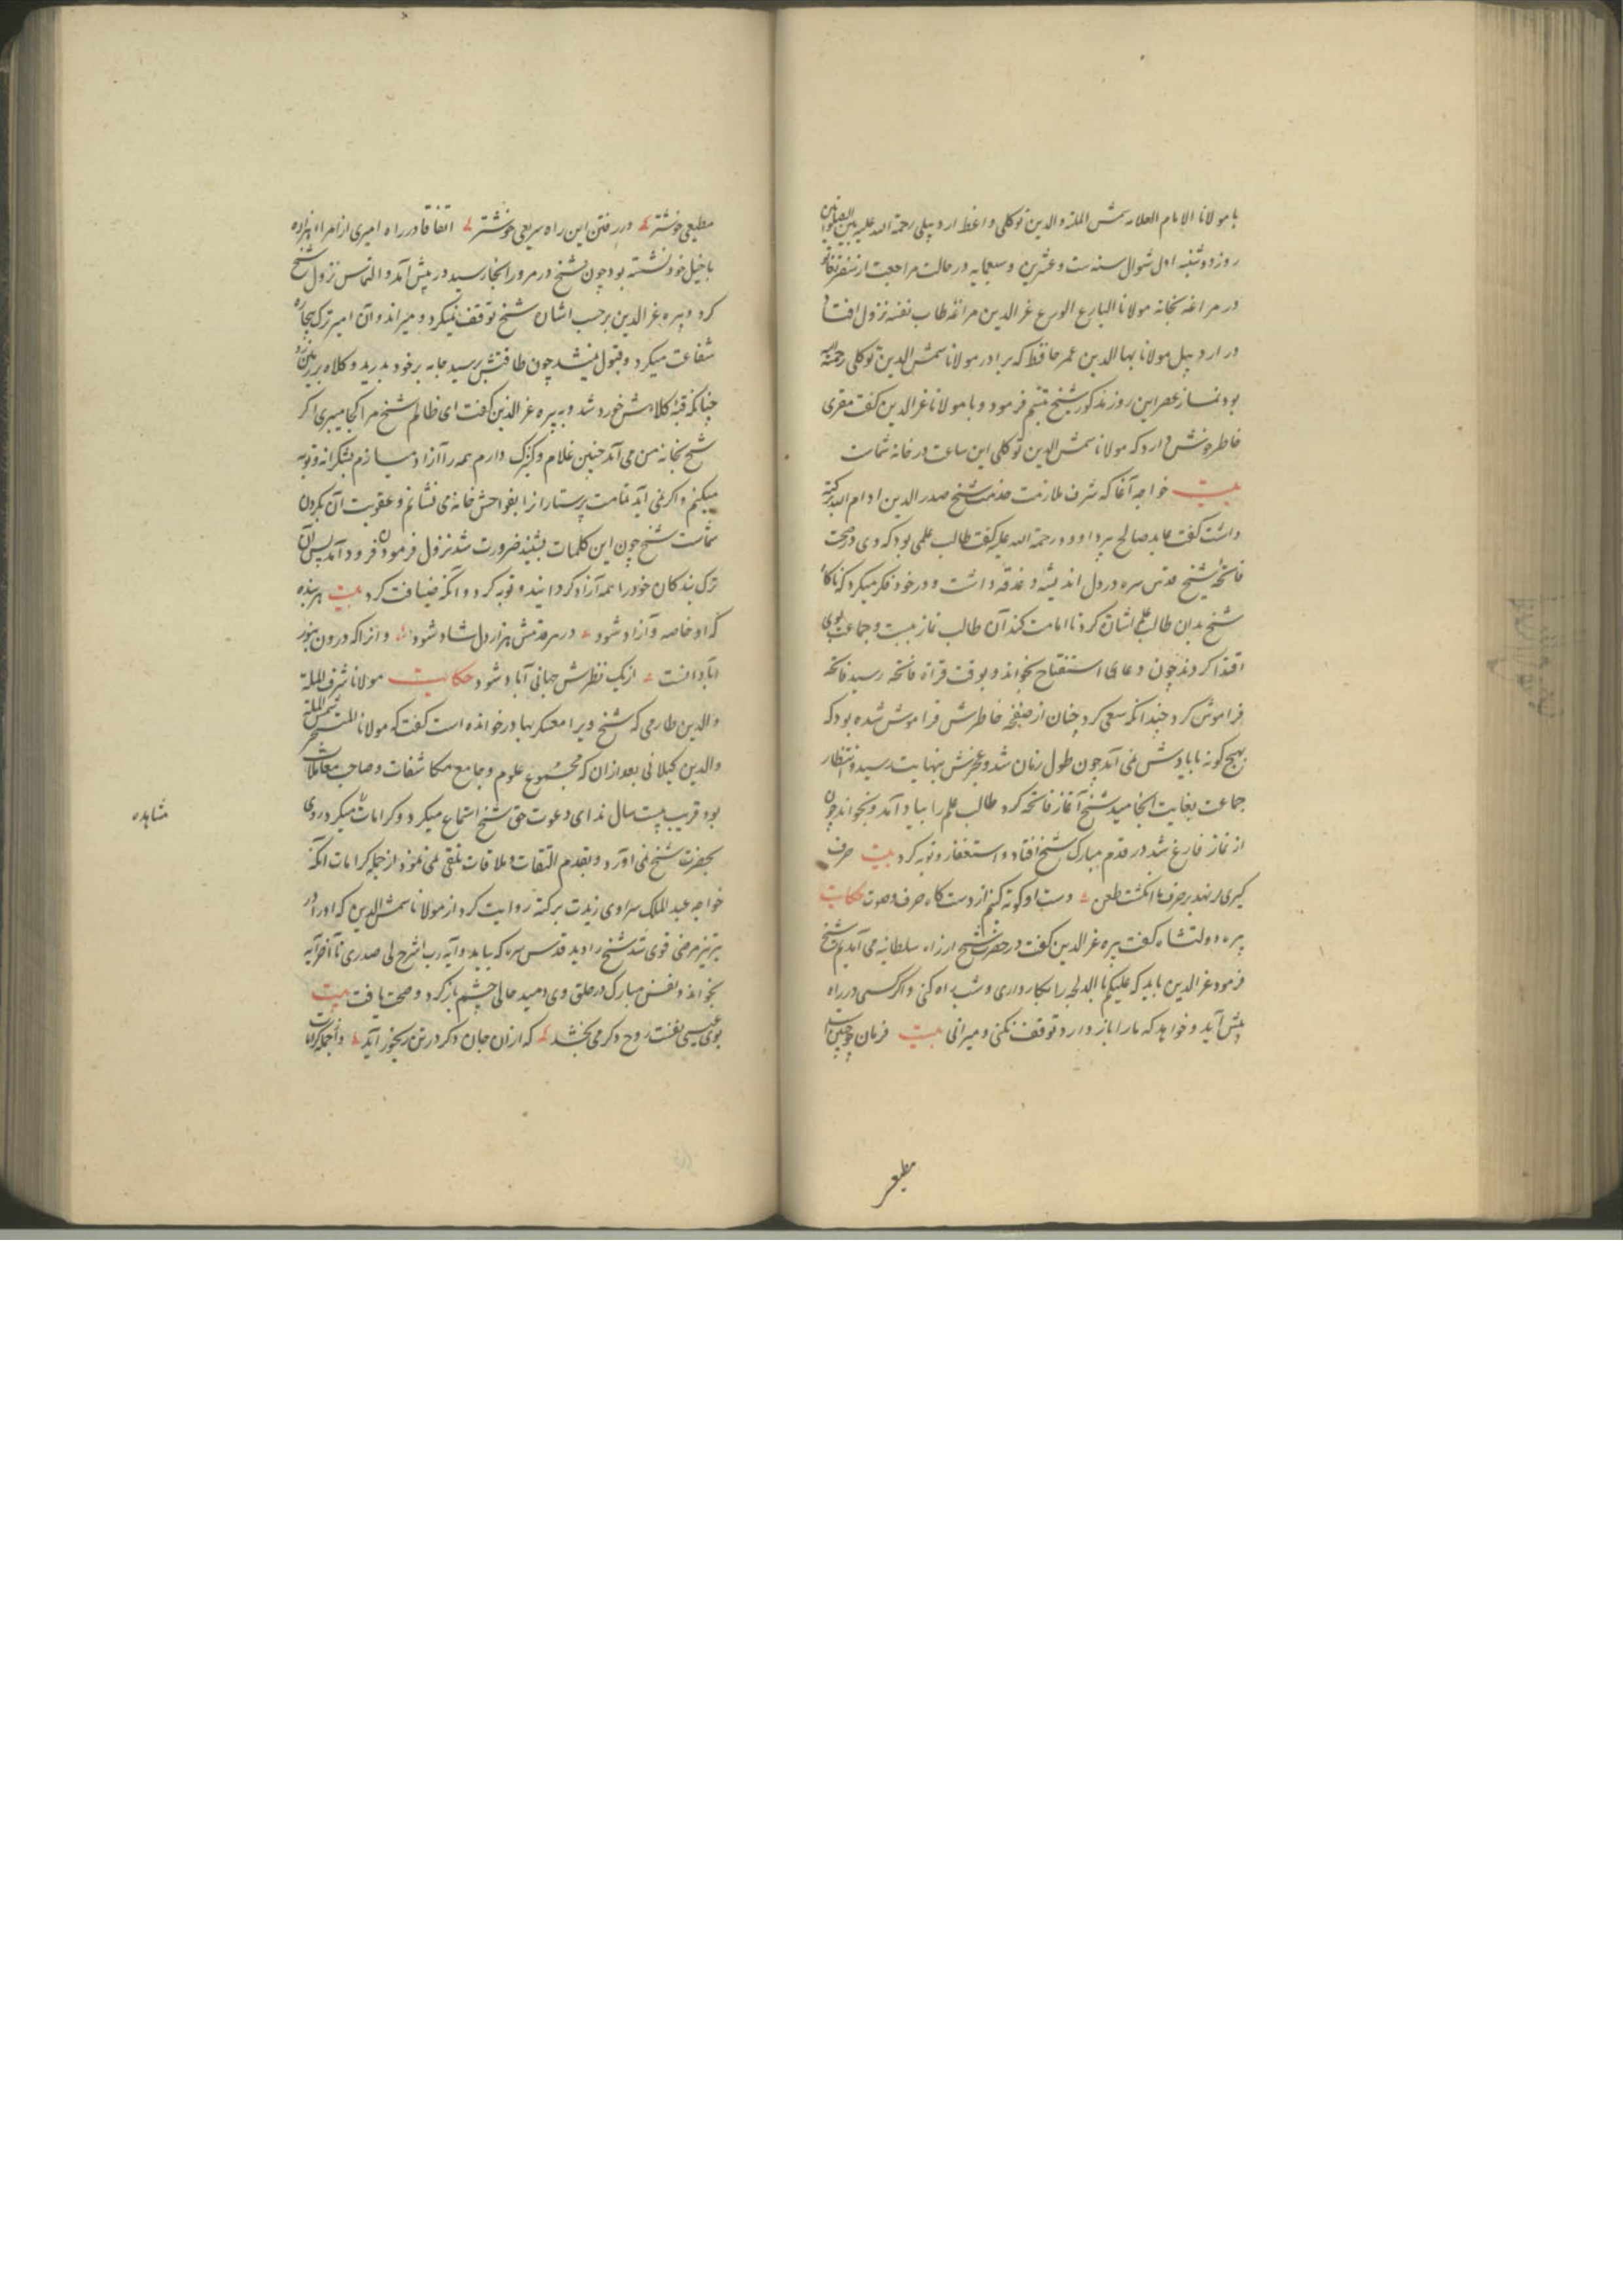 با مولانا الامام العلامه شمس الملة والدین توکلی واعظ اردبیلی رحمة الله علیه بین الصلواتین
روز دوشنبه اول شوال سنه ست و عشرین و سبعمایه در حالت مراجعت از سفر
در مراغه بخانه مولانا البارع الورع عز الدین مراغه طاب نفسه نزول افتاد
در اردبیل مولانا بها الدین عمر حافظ که برادر مولانا شمس الدین توکلی رحمة الله
بود نماز عصر این روز مذکور شیخ تبسم فرمود و با مولانا عز الدین گفت مقری
خاطر خوش دارد که مولانا شمس الدین توکلی این ساعت در خانه شماست
بیت خواجه آغا که شرف ملازمت خدمت شیخ صدر الدین ادام الله برکته
داشت گفت عابد صالح پیر داوود رحمة الله علیه گفت طالب علمی بود که وی در صحت
فاتحه شیخ قدس سره در دل اندیشه و غدقه داشت و در خود فکر میکرد که ناگاه
شیخ بدان طالب علم اشارت کرد تا امامت کند آن طالب نماز ببست و جماعت بوی
اقتدا کردند چون دعای استفتاح بخواند و بوقت قراة فاتحه رسید فاتحه
فراموش کرد چندانکه سعی کرد چنان از صفحه خاطرش فراموش شده بود که
بهیچ گونه با یادش نمی آمد چون طول زمان شد و عجزش بنهایت رسید و انتظار
جماعت بغایت انجامید شیخ آغاز فاتحه کرد طالب علم را بیاد آمد و بخواند چون
از نماز فارغ شد در قدم مبارک شیخ افتاد و استغفار و توبه کرد بیت حرف
گیری ار نهد بر حرف ما انگشت طعن دست او کوته کنم از دستگاه حرف و صوت حکایت
پیره دولتشاه گفت پیره عز الدین گفت در حضرت شیخ از راه سلطانیه می آمدیم شیخ
فرمود عز الدین باید که علیکم بالدلجه را بکار داری و شب راه کنی و اگر کسی در راه
پیش آید و خواهد که ما را باز دارد توقف نکنی و میرانی بیت فرمان چو چنین است
مطیعی
مطیعی خوشتر در رفتن این راه سریعی خوشتر اتفاقا در راه امیری از امراء هزاره
با خیل خود نشسته بود چون شیخ در مرور آنجا رسید در پیش آمد و التماس نزول شیخ
کرد و پیره عز الدین بر حسب اشارت شیخ توقف نمیکرد و میراند و آن امیر ترک بیچاره
شفاعت میکرد و قبول نمیشد چون طاقتش برسید جامه بر خود بدرید و کلاه بر زمین زد
چنانکه قبه کلاهش خورد شد و به پیره عز الدین گفت ای ظالم شیخ مرا کجا میبری اگر
شیخ بخانه من می آید چندین غلام و کنیزک دارم همه را آزاد میسازم بشکرانه و توبه
میکنم و اگر نمی آید تمامت پرستاران را بفواحش خانه می نشانم و عقوبت آن بگردن
شماست شیخ چون این کلمات بشنید ضرورت شد نزول فرمودن فرود آمد پس آن
ترک بندگان خود را همه آزاد گردانید و توبه کرد و آنگه ضیافت کرد بیت هر بنده
که او خاصه و آزاد شود در هر قدمش هزار دل شاد شود و انرا که درون بنور
آبادانست از یک نظرش جهانی آباد شود حکایت مولانا شرف الملة
والدین طارمی که شیخ ویرا معسکر بها در خوانده است گفت که مولانا شمس الملة
والدین گیلانی بعد از آن که مجموع علوم و جامع مکاشفات و صاحب معاملات
مشاهده
بود قریب بیست سال ندای دعوت حق شیخ استماع میکرد و کرامات میکرد روی
بحضرت شیخ نمی آورد و بقدم التفات و ملاقات تلقی نمی نمود از جمله کرامات آنکه
خواجه عبد الملک سراوی زیدت برکته روایت کرد از مولانا شمس الدین که او را در
تبریز مرضی قوی شد شیخ را دید قدس سره که بیامد و آیه رب اشرح لی صدری تا آخر آیه
بخواند و نفس مبارک در حلق وی دمید حالی چشم باز کرد و صحت یافت بیت
بوی عیسی نفست روح دگر می بخشد که از آن جان دگر در تن رنجور آید